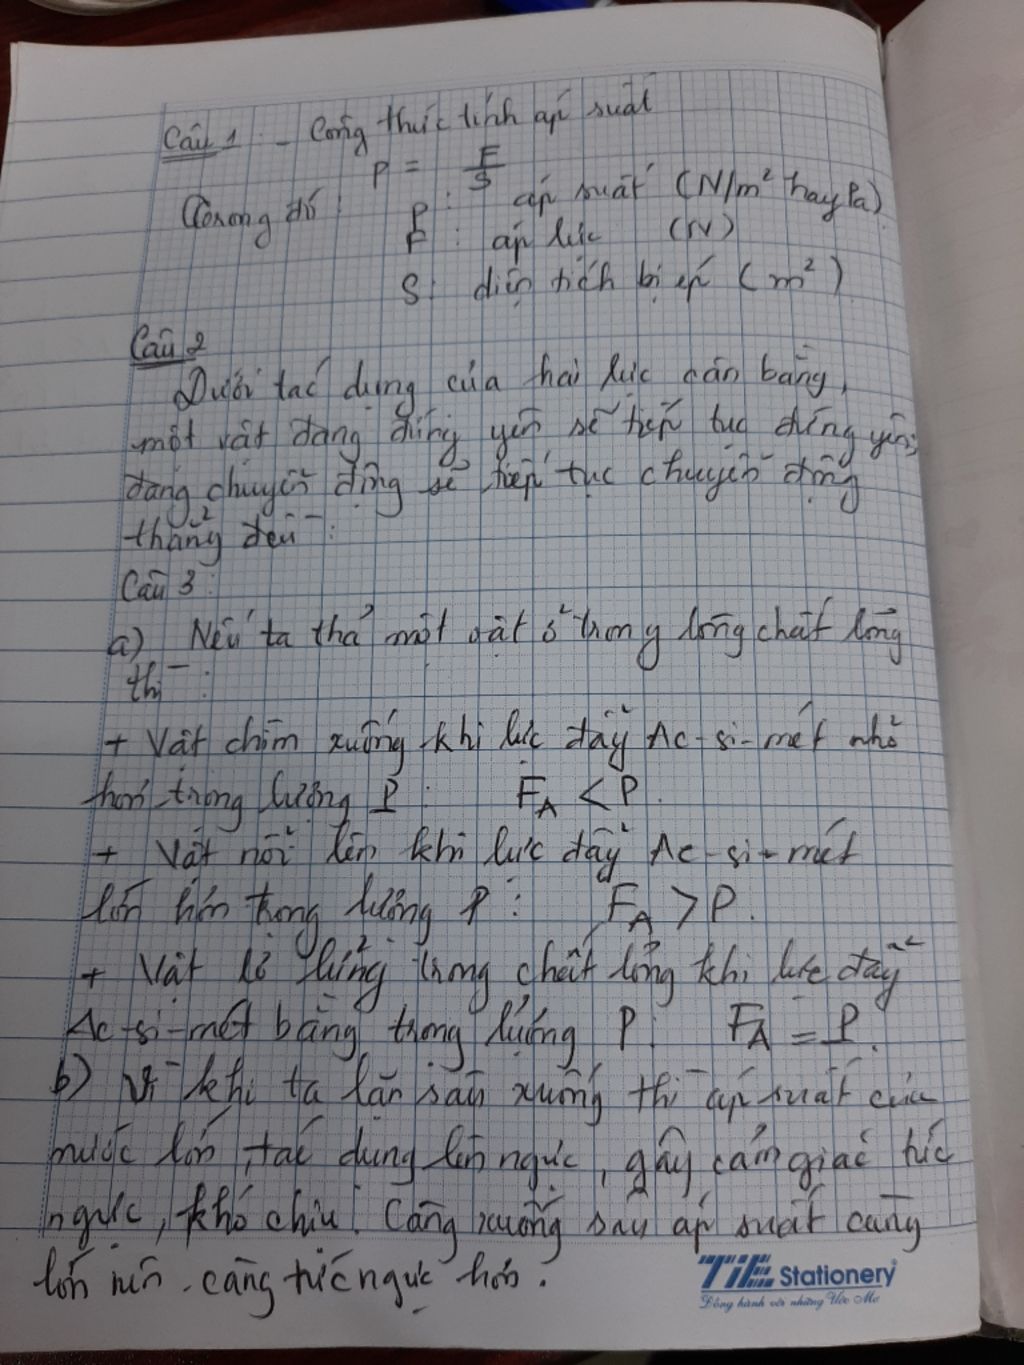 Câu 1 - Công thức tính áp suất
P = F/S
Trong đó: P : áp suất (N/m² hay Pa)
F : áp lực (N)
S: diện tích bị ép (m²)
Câu 2
Dưới tác dụng của hai lực cân bằng,
một vật đang đứng yên sẽ tiếp tục đứng yên,
đang chuyển động sẽ tiếp tục chuyển động
thẳng đều.
Câu 3:
a) Nếu ta thả một vật ở trong lòng chất lỏng
thì :
+ Vật chìm xuống khi lực đẩy Ac-si-mét nhỏ
hơn trọng lượng P : FA < P.
+ Vật nổi lên khi lực đẩy Ac-si-mét
lớn hơn trọng lượng P : FA > P.
+ Vật lơ lửng trong chất lỏng khi lực đẩy
Ac-si-mét bằng trọng lượng P: FA = P.
b) Vì khi ta lặn sâu xuống thì áp suất của
nước lớn, tác dụng lên ngực, gây cảm giác tức
ngực, khó chịu. Càng xuống sâu áp suất càng
lớn nên càng tức ngực hơn.
TiE Stationery
Đồng hành với những Ước Mơ